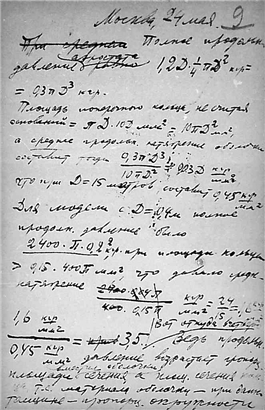 Москва, 24 мая 9
При средней Полное продольн
давление равно 1,2D·¼πD² кгр=
= 0,3πD³ кгр.
Площадь поперечного кольца, не считая
оснований = πD·10D мм² = 10πD² мм²,
а среднее продольн. натяжение оболочки
составит тогда 0,3πD³/10πD² = 0,03D кгр/мм²
что при D=15 метров составит 0,45 кгр/мм²
Для модели с D=0,4м полное
продольн. давление было
2400·π·0,2² кгр. при площади кольца
0,15·400π мм² что давало средн.
натяжение
400·0,15π кгр/мм² = 24/15 = 1,6 кгр/мм²
Вот откуда
1,6 кгр/мм² / 0,45 кгр/мм² = 3,5. Ведь продольн
давление возрастает пропорц.
площади сечения, а площ. сечения
т.е. материала оболочки - при данной
толщине - пропорц. окружности